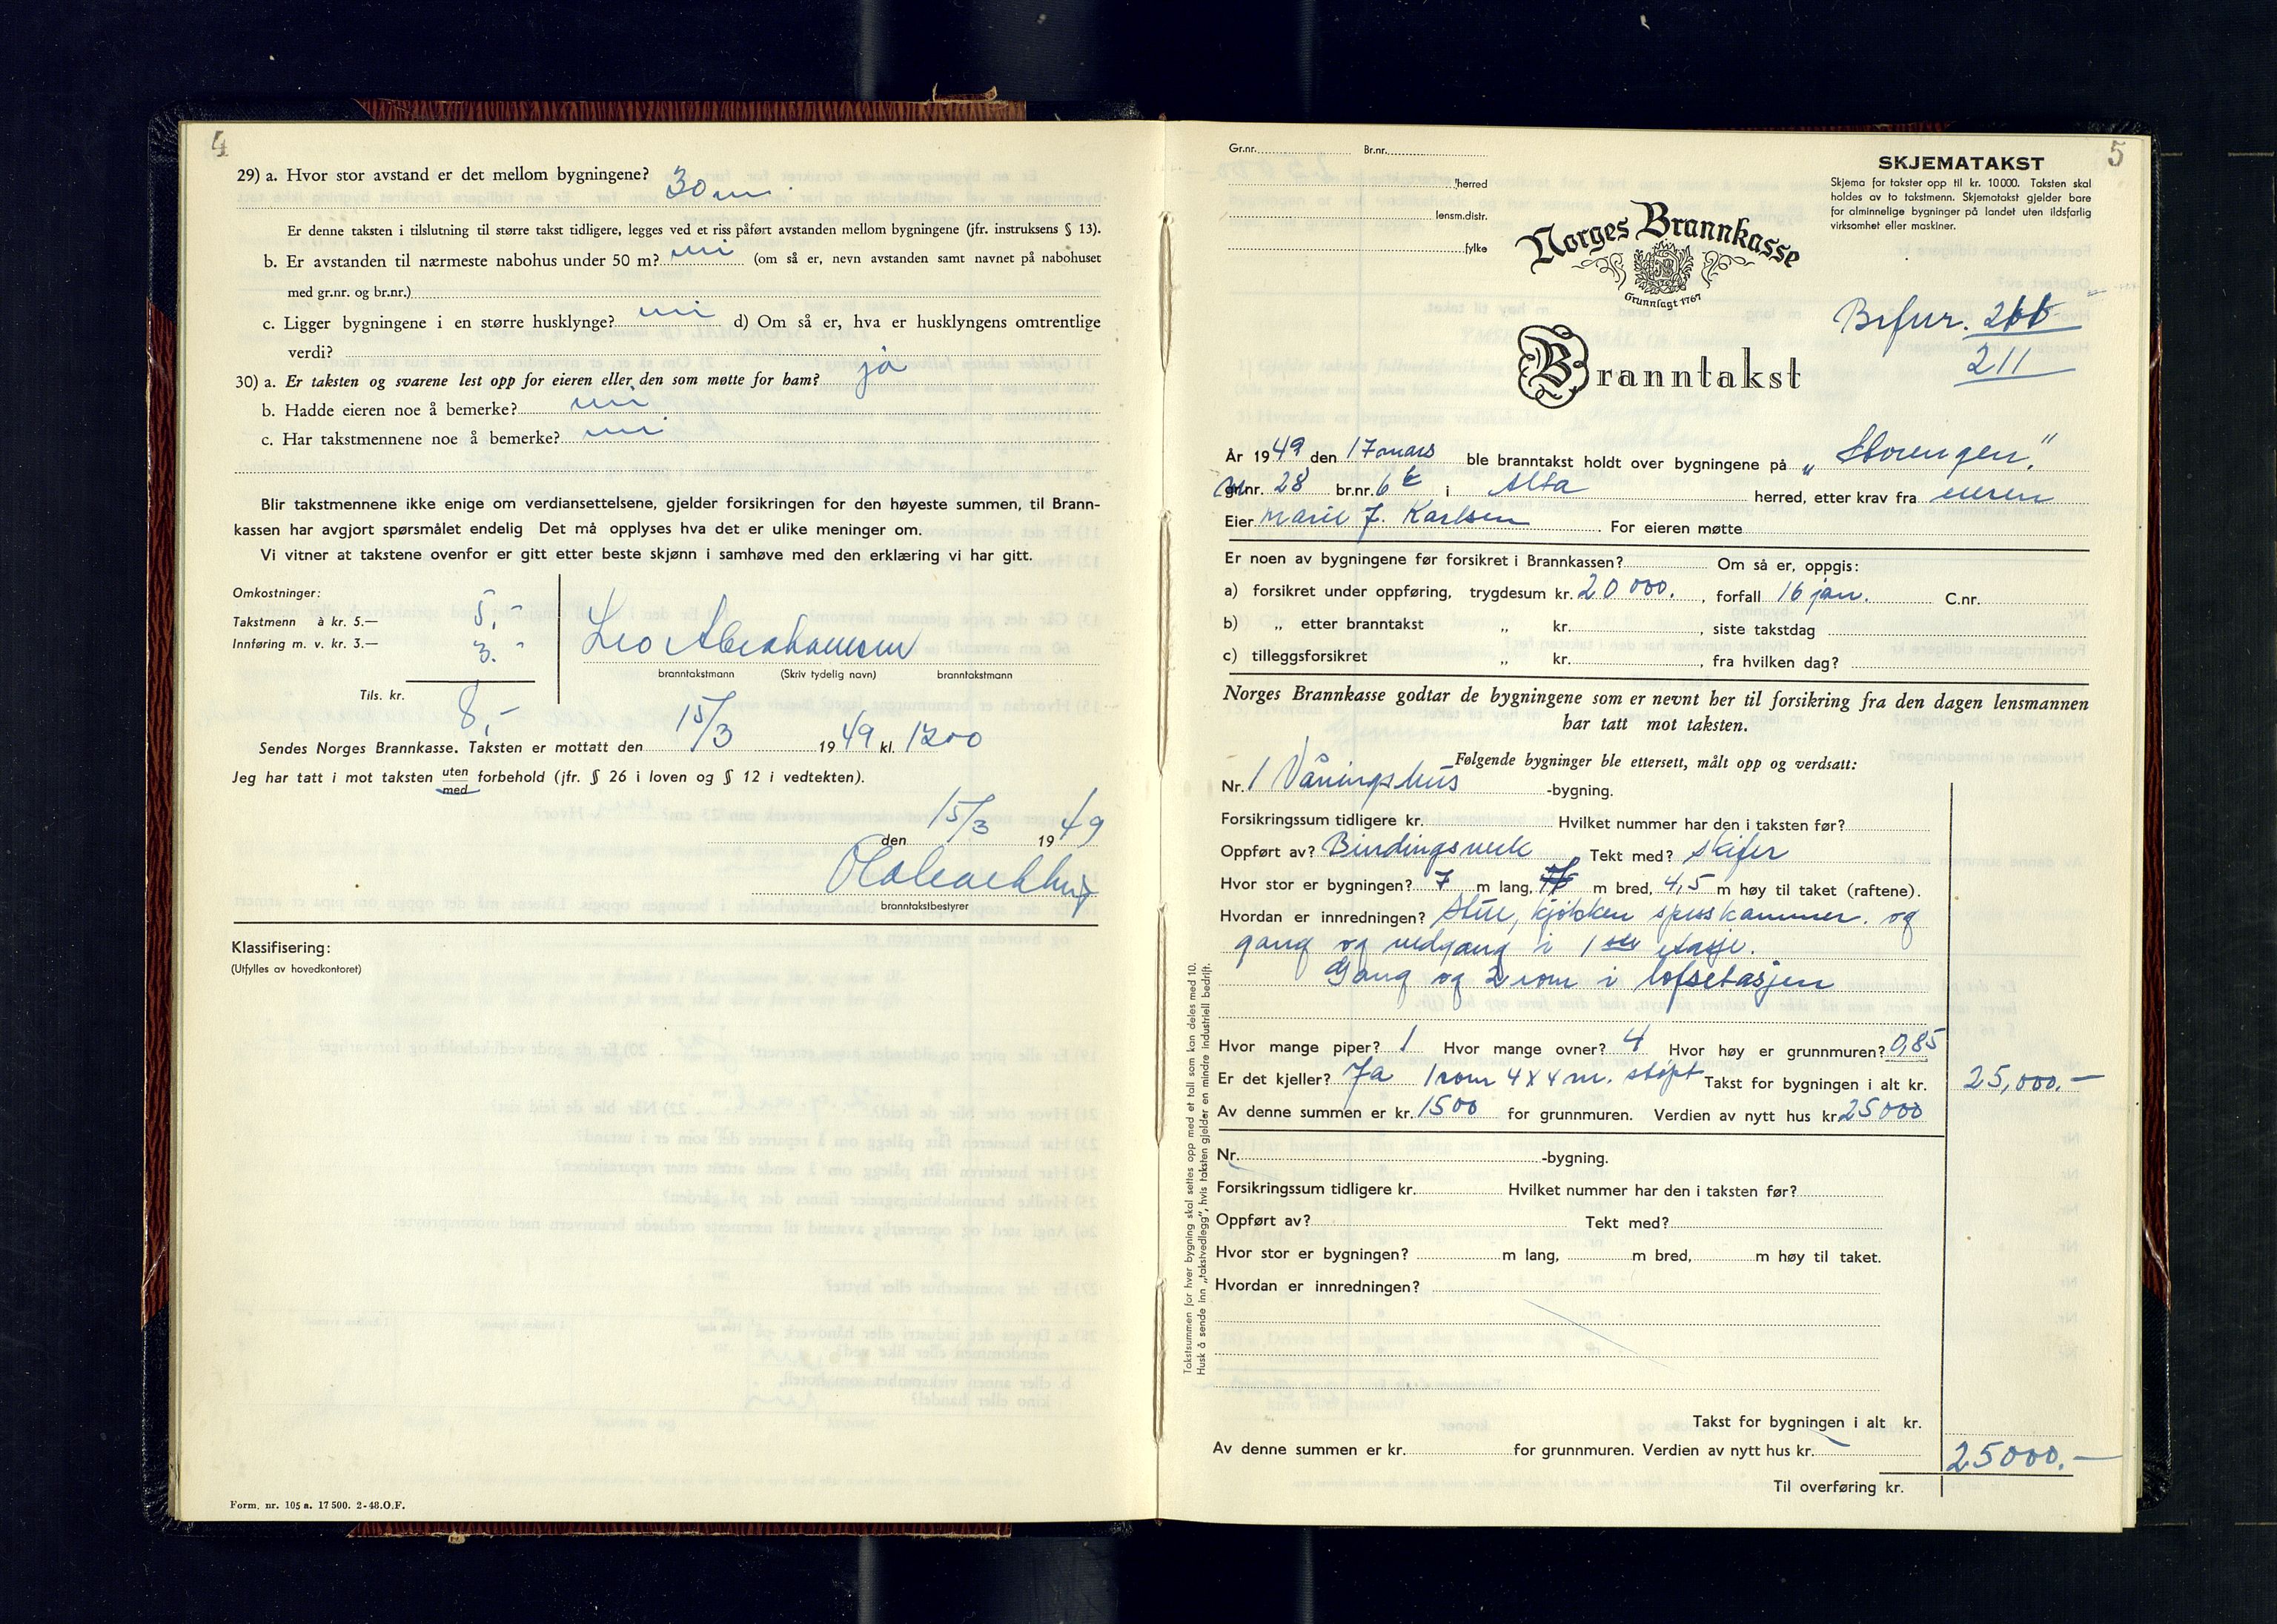 4
29) a. Hvor stor avstand er det mellom bygningene? 30 m.
Er denne taksten i tilslutning til større takst tidligere, legges ved et riss påført avstanden mellom bygningene (jfr. instruksens § 13).
b. Er avstanden til nærmeste nabohus under 50 m? nei (om så er, nevn avstanden samt navnet på nabohuset
med gr.nr. og br.nr.)
c. Ligger bygningene i en større husklynge? nei d) Om så er, hva er husklyngens omtrentlige
verdi?
30) a. Er taksten og svarene lest opp for eieren eller den som møtte for ham? ja
b. Hadde eieren noe å bemerke? nei
c. Har takstmennene noe å bemerke? nei
Blir takstmennene ikke enige om verdiansettelsene, gjelder forsikringen for den høyeste summen, til Brann-
kassen har avgjort spørsmålet endelig Det må opplyses hva det er ulike meninger om.
Vi vitner at takstene ovenfor er gitt etter beste skjønn i samhøve med den erklæring vi har gitt.
Omkostninger:
Takstmenn à kr. 5.— 5,-
Innføring m. v. kr. 3.— 3.-
Leo Abrahamsen
branntakstmann (Skriv tydelig navn) branntakstmann
Tils. kr. 8,-
Sendes Norges Brannkasse. Taksten er mottatt den 15/3 1949 kl. 1200
Jeg har tatt i mot taksten uten forbehold (jfr. § 26 i loven og § 12 i vedtekten).
med
den 15/3 1949
branntakstbestyrer
Klassifisering:
(Utfylles av hovedkontoret)
Form. nr. 105 a. 17 500. 2-48. O.F.
5
Gr.nr. Br.nr.
herred
lensm.distr.
fylke
SKJEMATAKST
Skjema for takster opp til kr. 10 000. Taksten skal
holdes av to takstmenn. Skjematakst gjelder bare
for alminnelige bygninger på landet uten ildsfarlig
virksomhet eller maskiner.
Norges Brannkasse
Grunnlagt 1767
211
Branntakst
År 1949 den 17 mars ble branntakst holdt over bygningene på „Storengen."
gr.nr. 28 br.nr. 6 i Alta herred, etter krav fra eieren
Eier Marie J. Karlsen For eieren møtte
Er noen av bygningene før forsikret i Brannkassen? Om så er, oppgis:
a) forsikret under oppføring, trygdesum kr. 20 000. , forfall 16 jan. C.nr.
b) „ etter branntakst „ kr. , siste takstdag
c) tilleggsforsikret „ kr. , fra hvilken dag?
Norges Brannkasse godtar de bygningene som er nevnt her til forsikring fra den dagen lensmannen
har tatt mot taksten.
Følgende bygninger ble ettersett, målt opp og verdsatt:
Nr. 1 Våningshus -bygning.
Forsikringssum tidligere kr. Hvilket nummer har den i taksten før?
Oppført av? Bindingsverk Tekt med? skifer
Hvor stor er bygningen? 7 m lang, m bred, 4,5 m høy til taket (raftene).
Hvordan er innredningen? Stue, kjøkken spisskammer. og
gang og vedgang i 1ste etasje.
Gang og 2 rom i loftsetasjen
Hvor mange piper? 1 Hvor mange ovner? 4 Hvor høy er grunnmuren? 0,85
Er det kjeller? Ja 1 rom 4 x 4 m. støpt Takst for bygningen i alt kr. 25,000.—
Av denne summen er kr. 1500 for grunnmuren. Verdien av nytt hus kr. 25000
Nr. -bygning.
Forsikringssum tidligere kr. Hvilket nummer har den i taksten før?
Oppført av? Tekt med?
Hvor stor er bygningen? m lang, m bred, m høy til taket.
Hvordan er innredningen?
Takst for bygningen i alt kr.
Av denne summen er kr. for grunnmuren. Verdien av nytt hus kr.
25000.—
Til overføring kr.
Takstsummen for hver bygning skal settes opp med et tall som kan deles med 10.
Husk å sende inn „takstvedlegg", hvis taksten gjelder en mindre industriell bedrift.